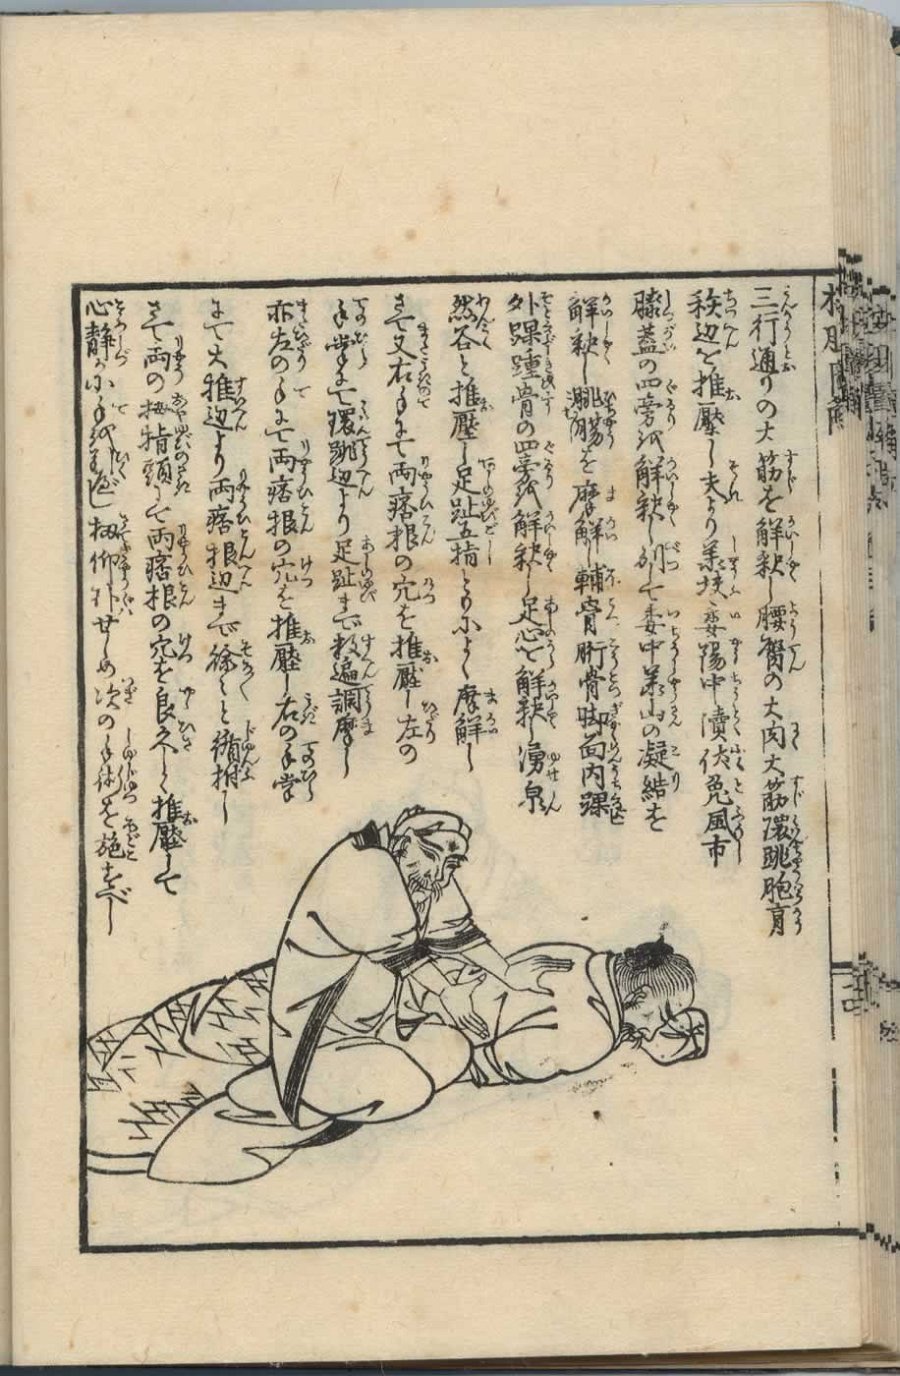 三行通りの大筋を解釈し腰髖の大肉大筋環跳胞肓
秩辺を推壓し夫より承扶委陽中瀆伏兎風市
膝蓋の四旁を解釈し別して委中承山の凝結を
解釈し腨腸を摩解し輔骨䯒骨脚面内踝
外踝踵骨の四旁を解釈し足心を解釈し湧泉
然谷を推壓し足趾五指ともによく摩解し
さて又右手にて両痞根の穴を推壓し左の
手掌にて環跳辺より足趾まで数遍調摩し
亦左の手にて両痞根の穴を推壓し右の手掌
にて大椎辺より両痞根辺まで徐々と循拊し
さて両の拇指頭にて両痞根の穴を良久しく推壓して
心静かに手を引退し扨仰臥せしめ次の手術を施すべし